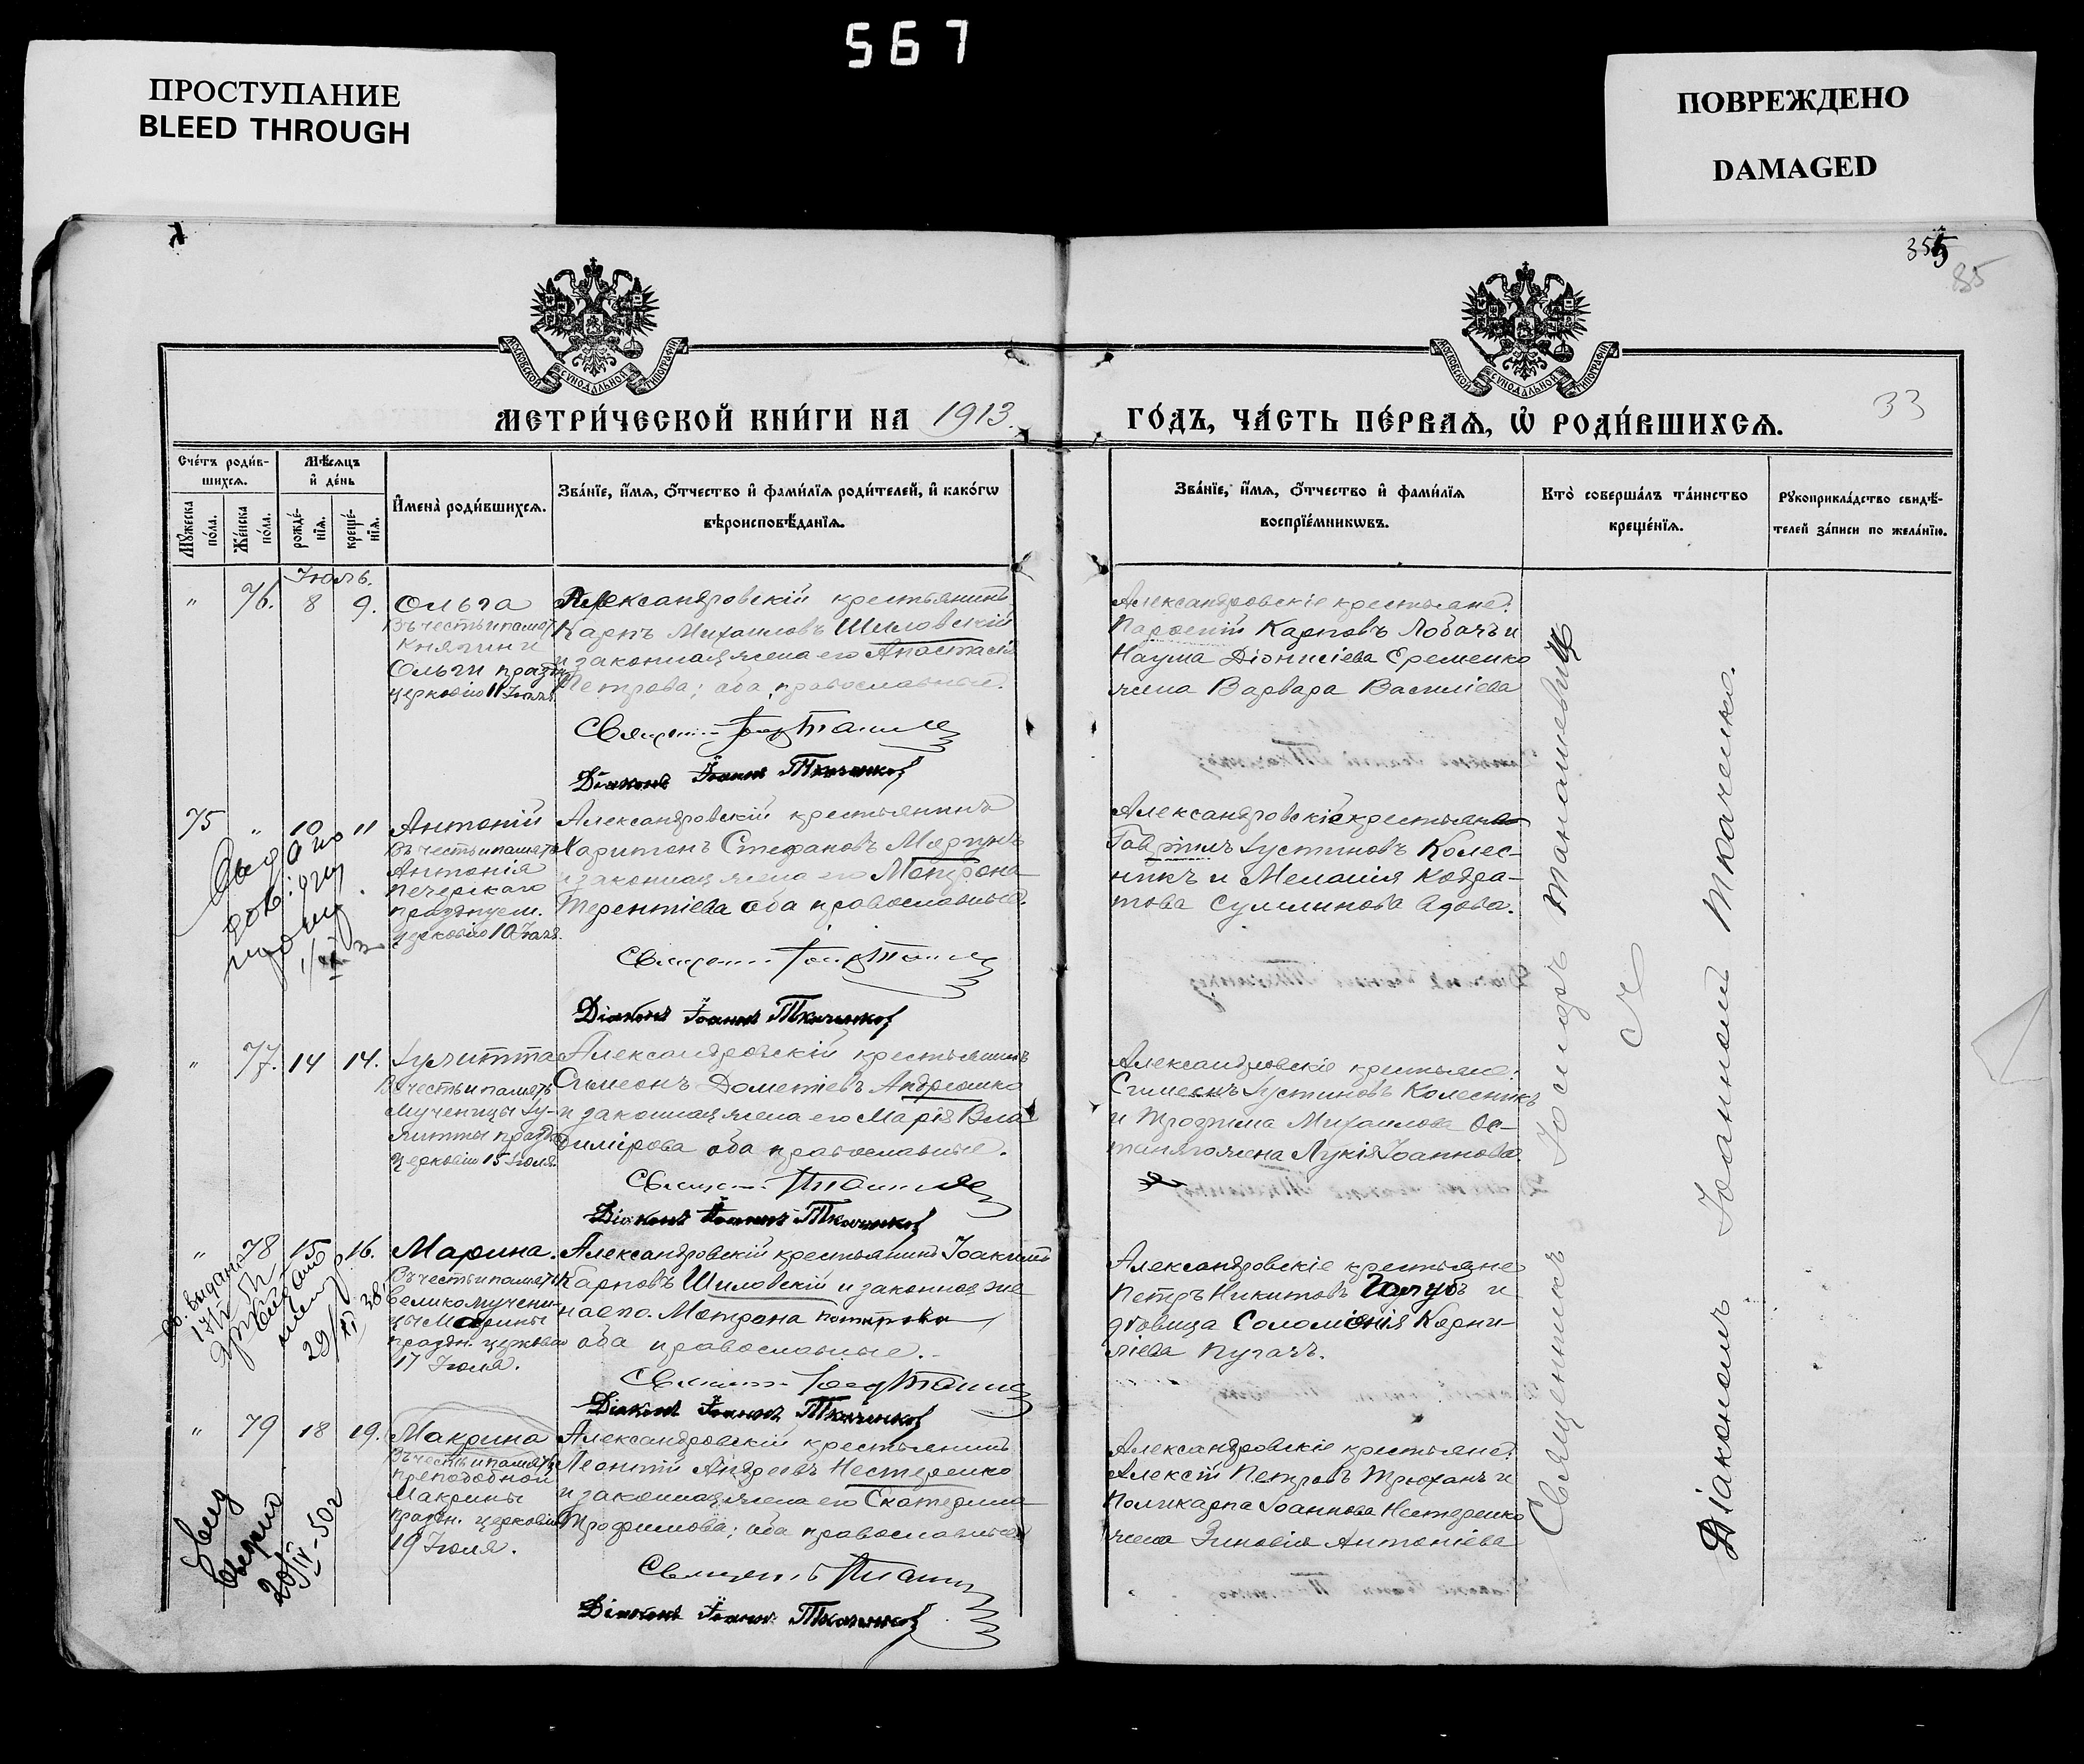 567
ПРОСТУПАНИЕ
BLEED THROUGH
ПОВРЕЖДЕНО
DAMAGED
355
85
33
МОСКОВСКОЙ СѴНОДАЛЬНОЙ ТИПОГРАФІИ
МОСКОВСКОЙ СѴНОДАЛЬНОЙ ТИПОГРАФІИ
МЕТРИ́ЧЕСКОЙ КНИ́ГИ НА 1913.
ГО́ДЪ, ЧА́СТЬ ПЕ́РВАѦ, Ѡ҆ РОДИ́ВШИХСѦ.
Сче́тъ роди́в-
шихсѧ.
Мѣ́сѧцъ
и҆ де́нь
Мꙋ́жеска
по́ла.
Же́нска
по́ла.
рожде́-
нїѧ.
креще́-
нїѧ.
И҆мена̀ роди́вшихсѧ.
Зва́нїе, и҆́мѧ, ѻ҆́тчество и҆ фами́лїѧ роди́телей, и҆ како́гѡ
вѣроисповѣ́данїѧ.
Зва́нїе, и҆́мѧ, ѻ҆́тчество и҆ фами́лїѧ
воспрїе́мникѡвъ.
Кто̀ соверша́лъ та́инство
креще́нїѧ.
Рꙋкоприкла́дство свидѣ́-
телей за́писи по жела́нїю.
Іюль.
" 76. 8 9. Ольга
Въ честь и памят.
Княгини
Ольги праздн.
церковію 11 Іюля.
Александровскій крестьянинъ
Карпъ Михаиловъ Шиловскій
и законная жена его Анастасія
Петрова; оба православные.
Діаконъ Іоаннъ Ткаченко
Александровскіе крестьяне:
Парѳеній Карповъ Лобачъ и
Наума Діонисіева Еременко
жена Варвара Василіева
75 " 10 11 Антоній
Въ честь и память
Антонія
Печерскаго
празднуем.
церковію 10 Іюля.
Александровскій крестьянинъ
Харитонъ Стефановъ
и законная жена его Матрона
Терентіева оба православные.
Діаконъ Іоаннъ Ткаченко
Александровскіе крестьяне
Іустиновъ Колес-
никъ и Меланія Кодра-
това вдова.
" 77. 14 14. Іулитта
Въ честь и память
мученицы Іу-
литты праздн.
церковію 15 Іюля.
Александровскій крестьянинъ
Симеонъ Дометіевъ Андрюшко
и законная жена его Марія Вла-
димірова оба православные.
Діаконъ Іоаннъ Ткаченко
Александровскіе крестьяне:
Симеонъ Іустиновъ Колесникъ
и Трофима Михаилова
жена Лукія Іоаннова.
" 78 15 16. Марина.
Въ честь и память
великомучени-
цы Марины
праздн. церковію
17 Іюля.
Александровскій крестьянинъ Іоакимъ
Карповъ Шиловскій и законная же-
на его Матрона
оба православные.
Діаконъ Іоаннъ Ткаченко
Александровскіе крестьяне
Петръ Никитовъ Голубъ и
дѣвица Соломонія Корни-
ліева Пугачъ.
" 79 18 19. Макрина
Въ честь и память
преподобной
Макрины
праздн. церковію
19 Іюля.
Александровскій крестьянинъ
Леонтій Андреевъ Нестеренко
и законная жена его Екатерина
Трофимова; оба православные
Діаконъ Іоаннъ Ткаченко
Александровскіе крестьяне:
Алексій Петровъ Трюханъ и
Поликарпа Іоаннова Нестеренко
жена Зиновія Антоніева
Священникъ Іосифъ Танашевичъ
съ
Діакономъ Іоанномъ Ткаченко.